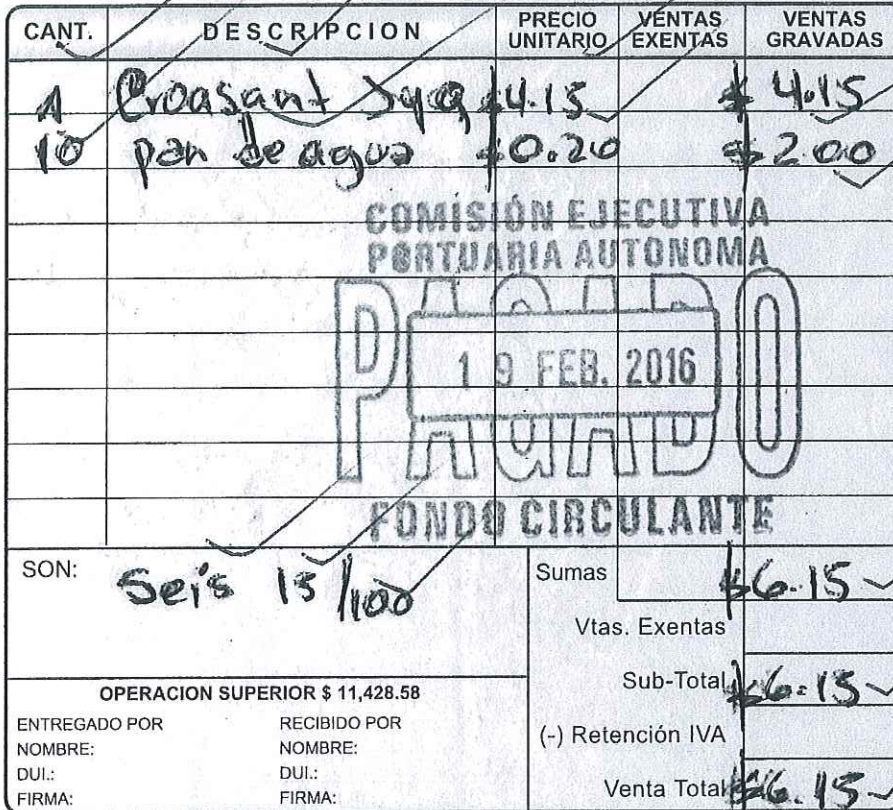 CANT. DESCRIPCION PRECIO UNITARIO VENTAS EXENTAS VENTAS GRAVADAS
1 Croasant JyQ $4.15 $4.15
10 pan de agua $0.20 $2.00
COMISIÓN EJECUTIVA
PORTUARIA AUTONOMA
PAGADO
19 FEB. 2016
FONDO CIRCULANTE
SON: Seis 15/100
Sumas $6.15
Vtas. Exentas
Sub-Total $6.15
(-) Retención IVA
Venta Total $6.15
OPERACION SUPERIOR $ 11,428.58
ENTREGADO POR RECIBIDO POR
NOMBRE: NOMBRE:
DUI.: DUI.:
FIRMA: FIRMA: